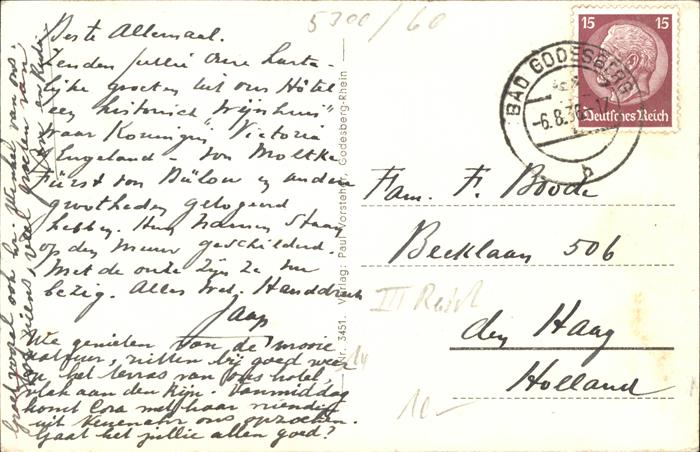 5300/60
Beste Allemaal.
Zenden jullie onze harte-
lijke groeten uit ons Hôtel
een "historisch Weijnhuis"
waar Koningin Victoria
Engeland - von Moltke
Fürst von Bülow en andere
grootheden gelogeerd
hebben. Hun namen staan
op den muur geschilderd.
Met de onze zijn ze nu
bezig. Alles wel. Handdruk
Jaap
We genieten van de mooie
natuur, zitten bij goed weer
op het terras van ons hotel,
vlak aan den Rijn. Vanmiddag
komt Cora met haar vriendin
uit Neuenahr ons opzoeken.
Gaat het jullie allen goed?
Nr. 3451. Verlag: Paul Vorsteher, Godesberg-Rhein
15 15
Deutsches Reich
BAD GODESBERG
-6.8.36
b
Fam. F. Boode
Beeklaan 506
den Haag
Holland
III Reich
10-